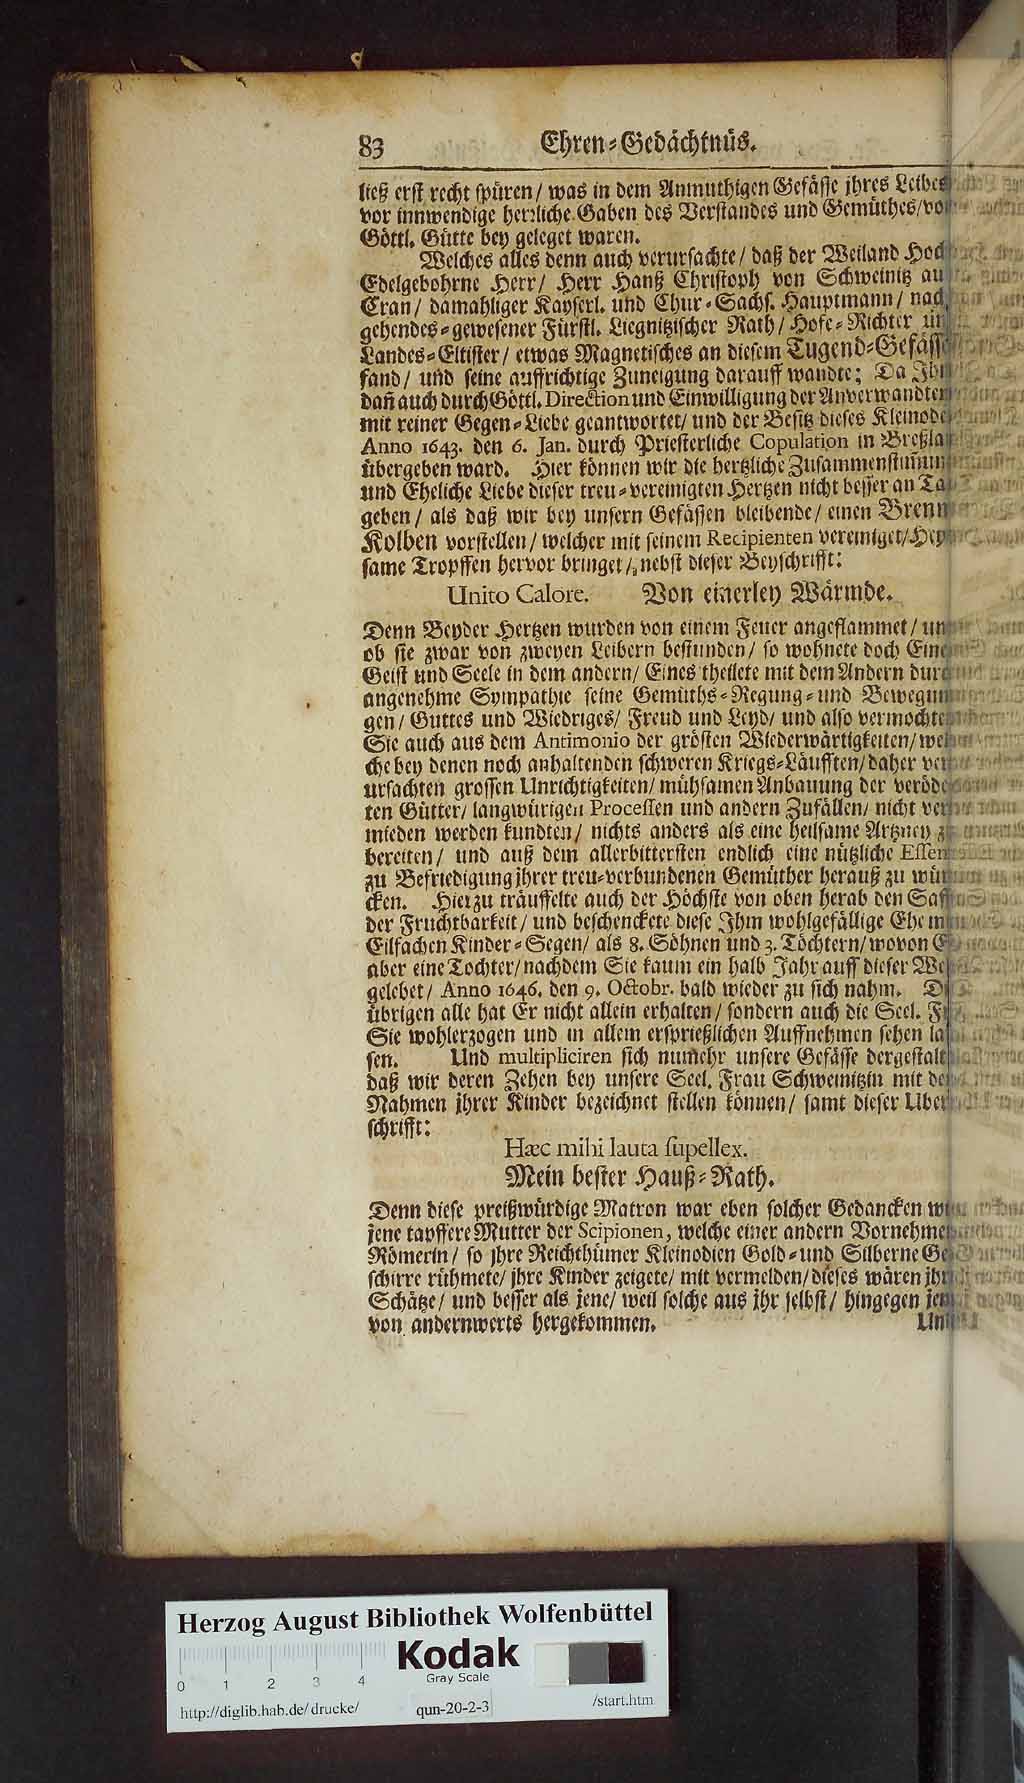 83 Ehren-Gedächtnüs.
ließ erst recht spüren/ was in dem Anmuthigen Gefässe jhres Leibes
vor innwendige herrliche Gaben des Verstandes und Gemüthes/ vo
Göttl. Gütte bey geleget waren.
Welches alles denn auch verursachte/ daß der Weiland Hoc
Edelgebohrne Herr/ Herr Hanß Christoph von Schweinitz au
Cran/ damahliger Kayserl. und Chur-Sächs. Hauptmann/ nach
gehendes-gewesener Fürstl. Liegnitzischer Rath/ Hofe-Richter un
Landes-Eltister/ etwas Magnetisches an diesem Tugend-Gefässe
fand/ und seine auffrichtige Zuneigung darauff wandte; Da Ihm
dañ auch durch Göttl. Direction und Einwilligung der Anverwandten
mit reiner Gegen-Liebe geantwortet/ und der Besitz dieses Kleinode
Anno 1643. den 6. Jan. durch Priesterliche Copulation in Breßla
übergeben ward. Hier können wir die hertzliche Zusammenstimun
und Eheliche Liebe dieser treu-vereinigten Hertzen nicht besser an Ta
geben/ als daß wir bey unsern Gefässen bleibende/ einen Brenn
Kolben vorstellen/ welcher mit seinem Recipienten vereiniget/ Hey
same Tropffen hervor bringet/ nebst dieser Beyschrifft:
Unito Calore. Von einerley Wärmde.
Denn Beyder Hertzen wurden von einem Feuer angeflammet/ un
ob sie zwar von zweyen Leibern bestunden/ so wohnete doch Eine
Geist und Seele in dem andern/ Eines theilete mit dem Andern durc
angenehme Sympathie seine Gemüths-Regung-und Bewegun
gen/ Guttes und Wiedriges/ Freud und Leyd/ und also vermochte
Sie auch aus dem Antimonio der grösten Wiederwärtigkeiten/ wel
che bey denen noch anhaltenden schweren Kriegs-Läufften/ daher ver
ursachten grossen Unrichtigkeiten/ mühsamen Anbauung der veröde
ten Gütter/ langwürigen Processen und andern Zufällen/ nicht ver
mieden werden kundten/ nichts anders als eine heilsame Artzney z
bereiten/ und auß dem allerbittersten endlich eine nützliche Essen
zu Befriedigung jhrer treu-verbundenen Gemüther herauß zu wür
cken. Hierzu träuffelte auch der Höchste von oben herab den Saff
der Fruchtbarkeit/ und beschenckete diese Ihm wohlgefällige Ehe m
Eilfachen Kinder-Segen/ als 8. Söhnen und 3. Töchtern/ wovon E
aber eine Tochter/ nachdem Sie kaum ein halb Jahr auff dieser We
gelebet/ Anno 1646. den 9. Octobr. bald wieder zu sich nahm. D
übrigen alle hat Er nicht allein erhalten/ sondern auch die Seel. F
Sie wohlerzogen und in allem ersprießlichen Auffnehmen sehen la
sen. Und multipliciren sich numehr unsere Gefässe dergestalt
daß wir deren Zehen bey unsere Seel. Frau Schweinitzin mit de
Nahmen jhrer Kinder bezeichnet stellen können/ samt dieser Uber
schrifft:
Hæc mihi lauta supellex.
Mein bester Hauß-Rath.
Denn diese preißwürdige Matron war eben solcher Gedancken w
jene tapffere Mutter der Scipionen, welche einer andern Vornehme
Römerin/ so jhre Reichthümer Kleinodien Gold-und Silberne Ge
schirre rühmete/ jhre Kinder zeigete/ mit vermelden/ dieses wären jhr
Schätze/ und besser als jene/ weil solche aus jhr selbst/ hingegen jen
von andernwerts hergekommen.
Herzog August Bibliothek Wolfenbüttel
Kodak
Gray Scale
0 1 2 3 4
http://diglib.hab.de/drucke/ qun-20-2-3 /start.htm